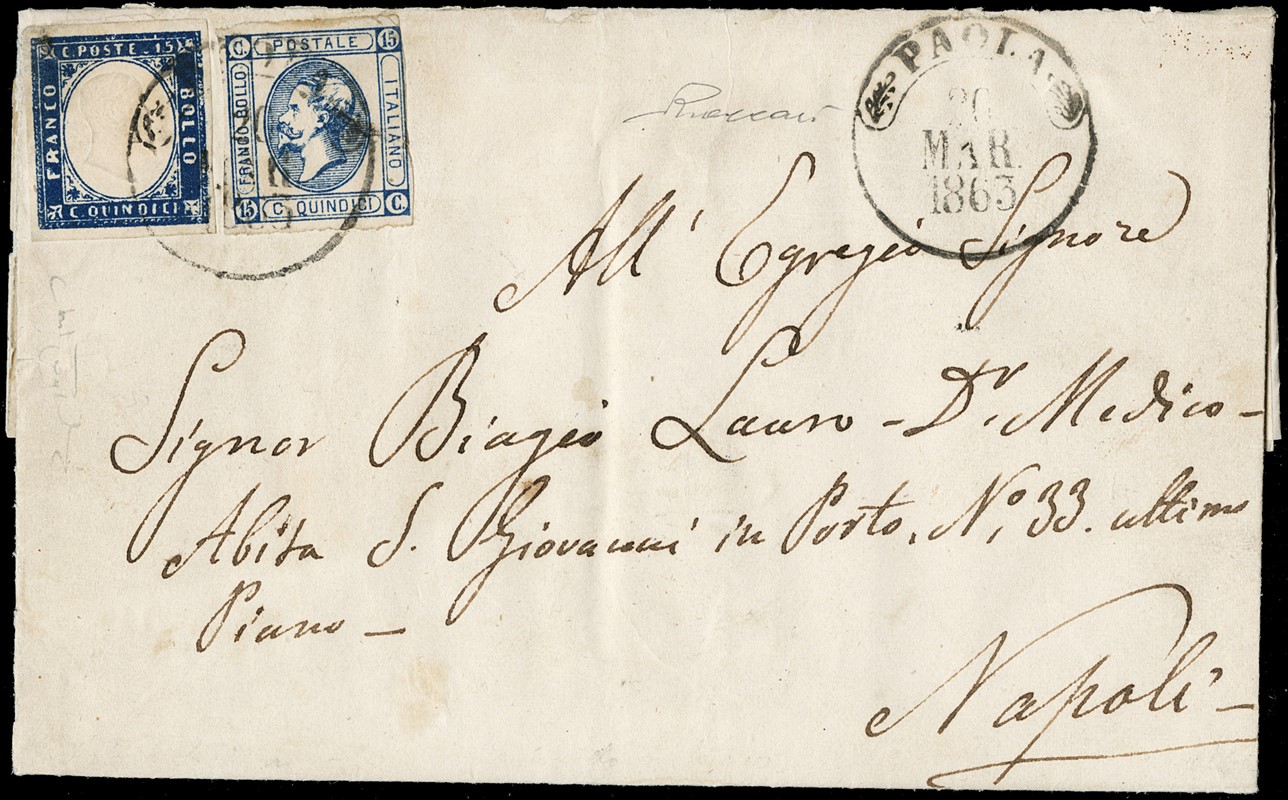 C. POSTE. 15
FRANCO
BOLLO
C. QUINDICI
C. POSTALE 15
FRANCO BOLLO
ITALIANO
15 C. QUINDICI C.
PAOLA
20
MAR.
1863
All' Egregio Signore
Signor Biagio Lauro - Dr. Medico -
Abita S. Giovanni in Porto, No. 33. ultimo
Piano -
Napoli -